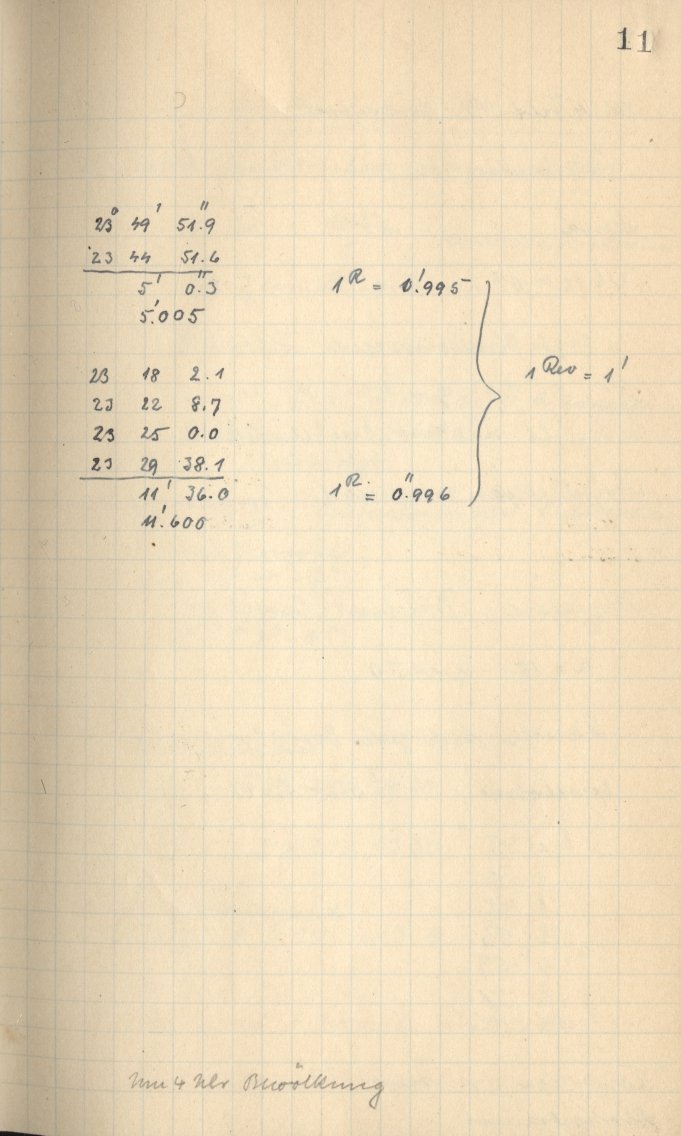 11
23° 49' 51.9"
23 44 51.6
5' 0.3"
5'.005
1ᴿ = 0'.995
23 18 2.1
23 22 8.7
23 25 0.0
23 29 38.1
11' 36.0
11'.600
1ᴿ· = 0".996
1ᴿᵉᵛ = 1'
Um 4 Uhr Bewölkung